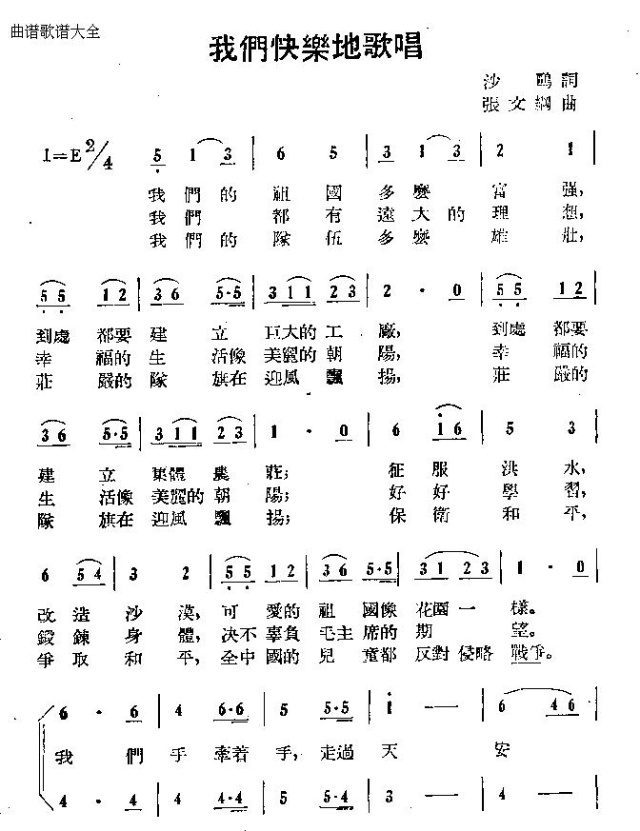 曲谱歌谱大全
我們快樂地歌唱
沙鷗詞
張文綱曲
1=E 2/4 5 1 3 | 6 5 | 3 1 3 | 2 1 |
我們的祖國多麼富强,
我們都有遠大的理想,
我們的隊伍多麼雄壯,
5 5 1 2 | 3 6 5·5 | 3 1 1 2 3 | 2 · 0 | 5 5 1 2 |
到處都要建立巨大的工廠, 到處都要
幸福的生活像美麗的朝陽, 幸福的
莊嚴的隊旗在迎風飄揚, 莊嚴的
3 6 5·5 | 3 1 1 2 3 | 1 · 0 | 6 1 6 | 5 3 |
建立集體農莊; 征服洪水,
生活像美麗的朝陽; 好好學習,
隊旗在迎風飄揚; 保衛和平,
6 5 4 | 3 2 | 5 5 1 2 | 3 6 5·5 | 3 2 1 2 3 | 1 · 0
改造沙漠,可愛的祖國像花園一樣。
鍛鍊身體,决不辜負毛主席的期望。
爭取和平,全中國的兒童都反對侵略戰爭。
6 · 6 | 4 6·6 | 5 5·5 | 1 — | — — | 6 4 6
我們手牽着手,走過天安
4 · 4 | 4 4·4 | 5 5·4 | 3 — | — — | 4 4